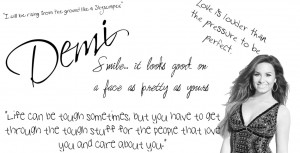 "I will be rising from the ground like a Skyscraper"
Love is louder than
the pressure to be
perfect
Demi
Smile... it looks good on
a face as pretty as yours
"Life can be tough sometimes, but you have to get
through the tough stuff for the people that love
you and care about you"